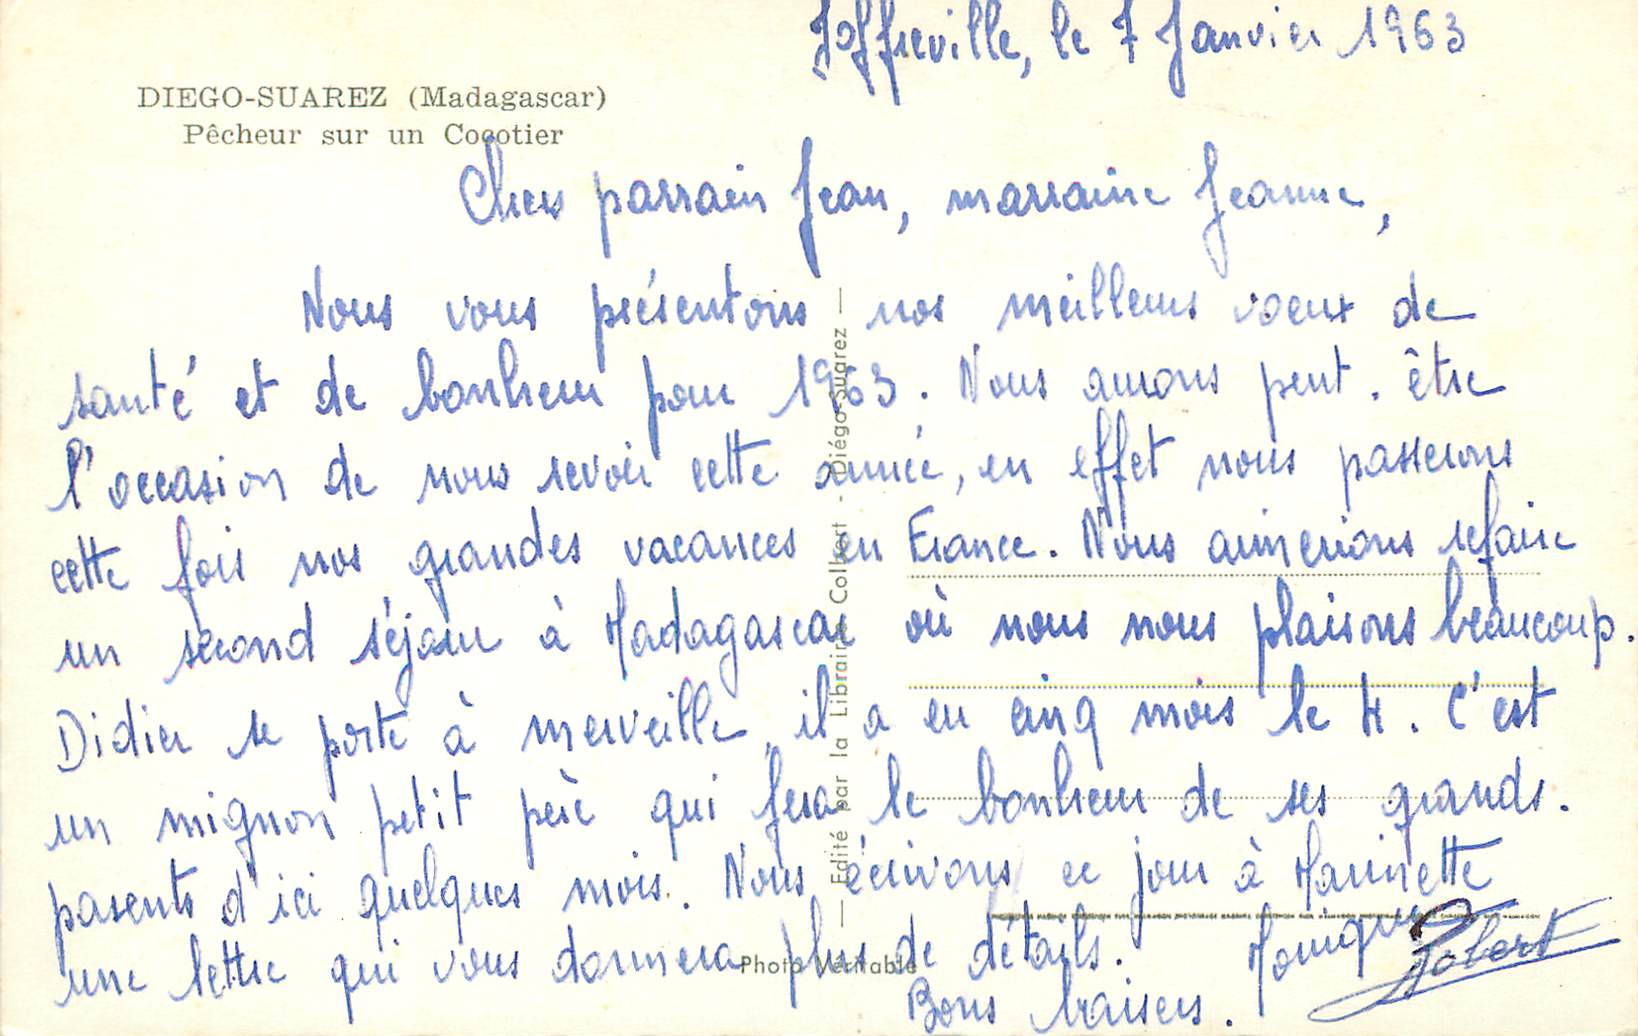 Joffreville, le 7 Janvier 1963
DIEGO-SUAREZ (Madagascar)
Pêcheur sur un Cocotier
Chers parrain Jean, marraine Jeanne,
Nous vous présentons nos meilleurs voeux de
santé et de bonheur pour 1963. Nous aurons peut-être
l'occasion de nous revoir cette année, en effet nous passerons
cette fois nos grandes vacances en France. Nous aimerions refaire
un second séjour à Madagascar où nous nous plaisons beaucoup.
Didier se porte à merveille, il a eu cinq mois le 4. C'est
un mignon petit père qui fera le bonheur de ses grands-
parents d'ici quelques mois. Nous écrivons ce jour à Maurinette
une lettre qui vous donnera plus de détails.
Bons baisers. Monique
Robert
— Edité par la Librairie Colbert - Diégo-Suarez —
Photo Véritable